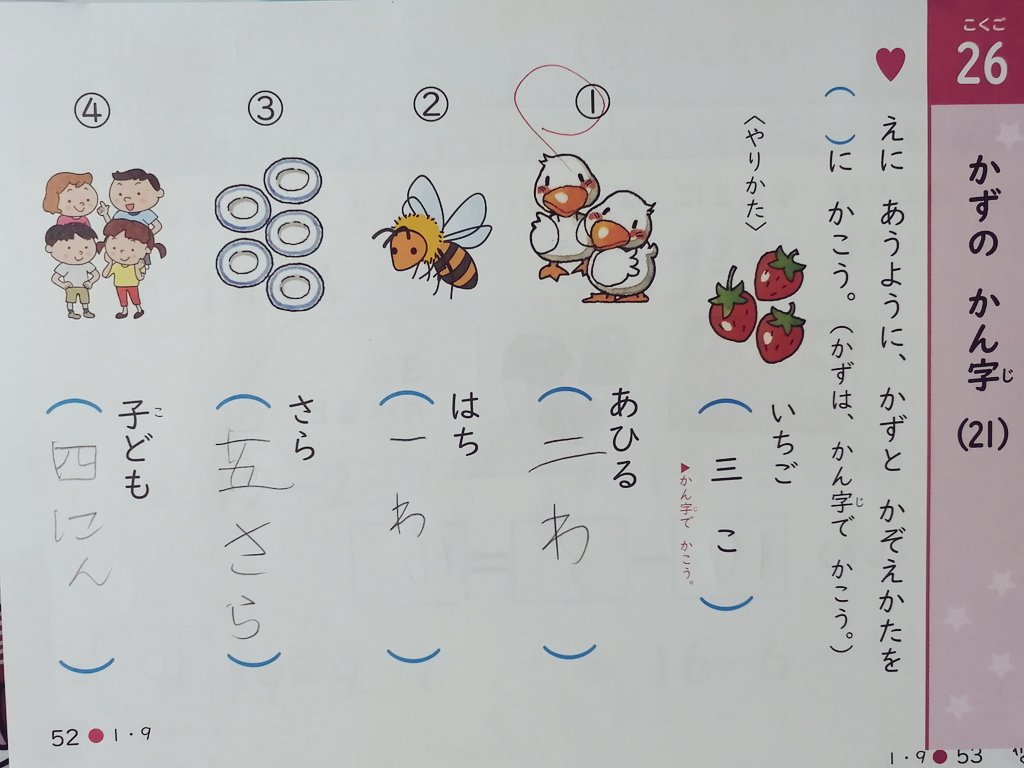 こくご
26
かずの かん字 (21)
じ
♥ えに あうように、かずと かぞえかたを
( )に かこう。(かずは、かん字で かこう。)
じ
〈やりかた〉
いちご
(三 こ)
▶かん字で かこう。
①
あひる
(二わ)
②
はち
(一わ)
③
さら
(五さら)
④
子ども
こ
(四にん)
52 ● 1・9
1・9 ● 53